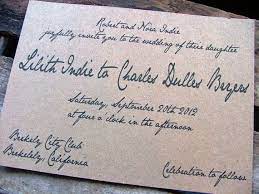 Robert and Nora Indie
joyfully invite you to the wedding of their daughter
Lilith Indie to Charles Dulles Bryers
Saturday, September 20th 2013
at four o'clock in the afternoon
Berkeley City Club
Berkeley, California
Celebration to follow